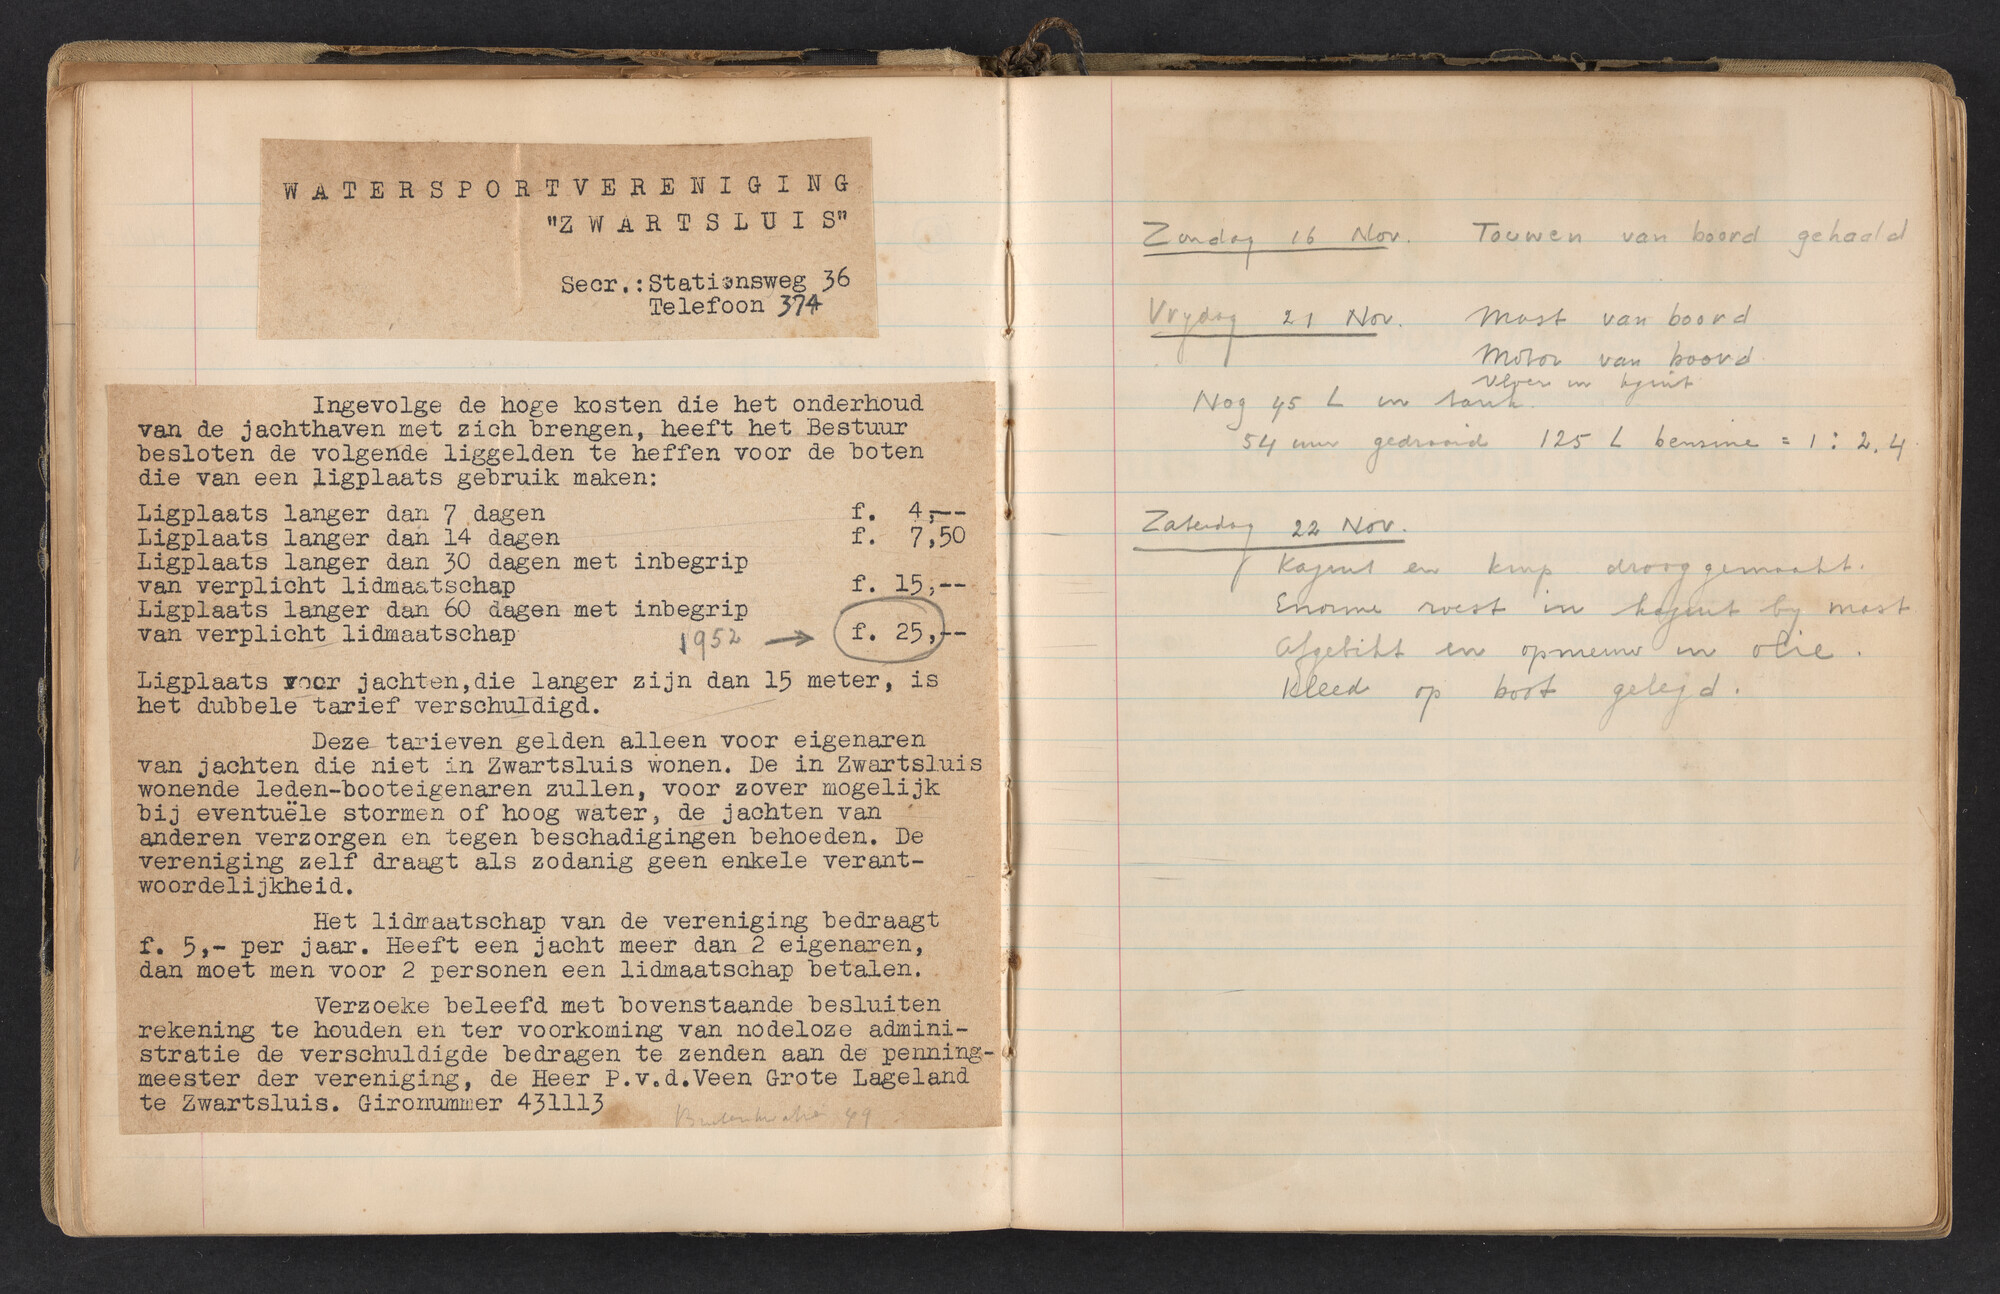 WATERSPORTVERENIGING
"ZWARTSLUIS"
Secr.: Stationsweg 36
Telefoon 374
Ingevolge de hoge kosten die het onderhoud
van de jachthaven met zich brengen, heeft het Bestuur
besloten de volgende liggelden te heffen voor de boten
die van een ligplaats gebruik maken:
Ligplaats langer dan 7 dagen f. 4,--
Ligplaats langer dan 14 dagen f. 7,50
Ligplaats langer dan 30 dagen met inbegrip
van verplicht lidmaatschap f. 15,--
Ligplaats langer dan 60 dagen met inbegrip
van verplicht lidmaatschap 1952 → f. 25,--
Ligplaats voor jachten,die langer zijn dan 15 meter, is
het dubbele tarief verschuldigd.
Deze tarieven gelden alleen voor eigenaren
van jachten die niet in Zwartsluis wonen. De in Zwartsluis
wonende leden-booteigenaren zullen, voor zover mogelijk
bij eventuële stormen of hoog water, de jachten van
anderen verzorgen en tegen beschadigingen behoeden. De
vereniging zelf draagt als zodanig geen enkele verant-
woordelijkheid.
Het lidmaatschap van de vereniging bedraagt
f. 5,- per jaar. Heeft een jacht meer dan 2 eigenaren,
dan moet men voor 2 personen een lidmaatschap betalen.
Verzoeke beleefd met bovenstaande besluiten
rekening te houden en ter voorkoming van nodeloze admini-
stratie de verschuldigde bedragen te zenden aan de penning-
meester der vereniging, de Heer P.v.d.Veen Grote Lageland
te Zwartsluis. Gironummer 431113
49
Zondag 16 Nov. Touwen van boord gehaald
Vrydag 21 Nov. Mast van boord
Motor van boord
vloer in kajuit
Nog 45 L in tank.
54 uur gedraaid 125 L benzine = 1 : 2.4.
Zaterdag 22 Nov.
Kajuit en kuip drooggemaakt.
Enorme roest in kajuit by mast
Afgebikt en opnieuw in olie.
Kleed op boot gelegd.